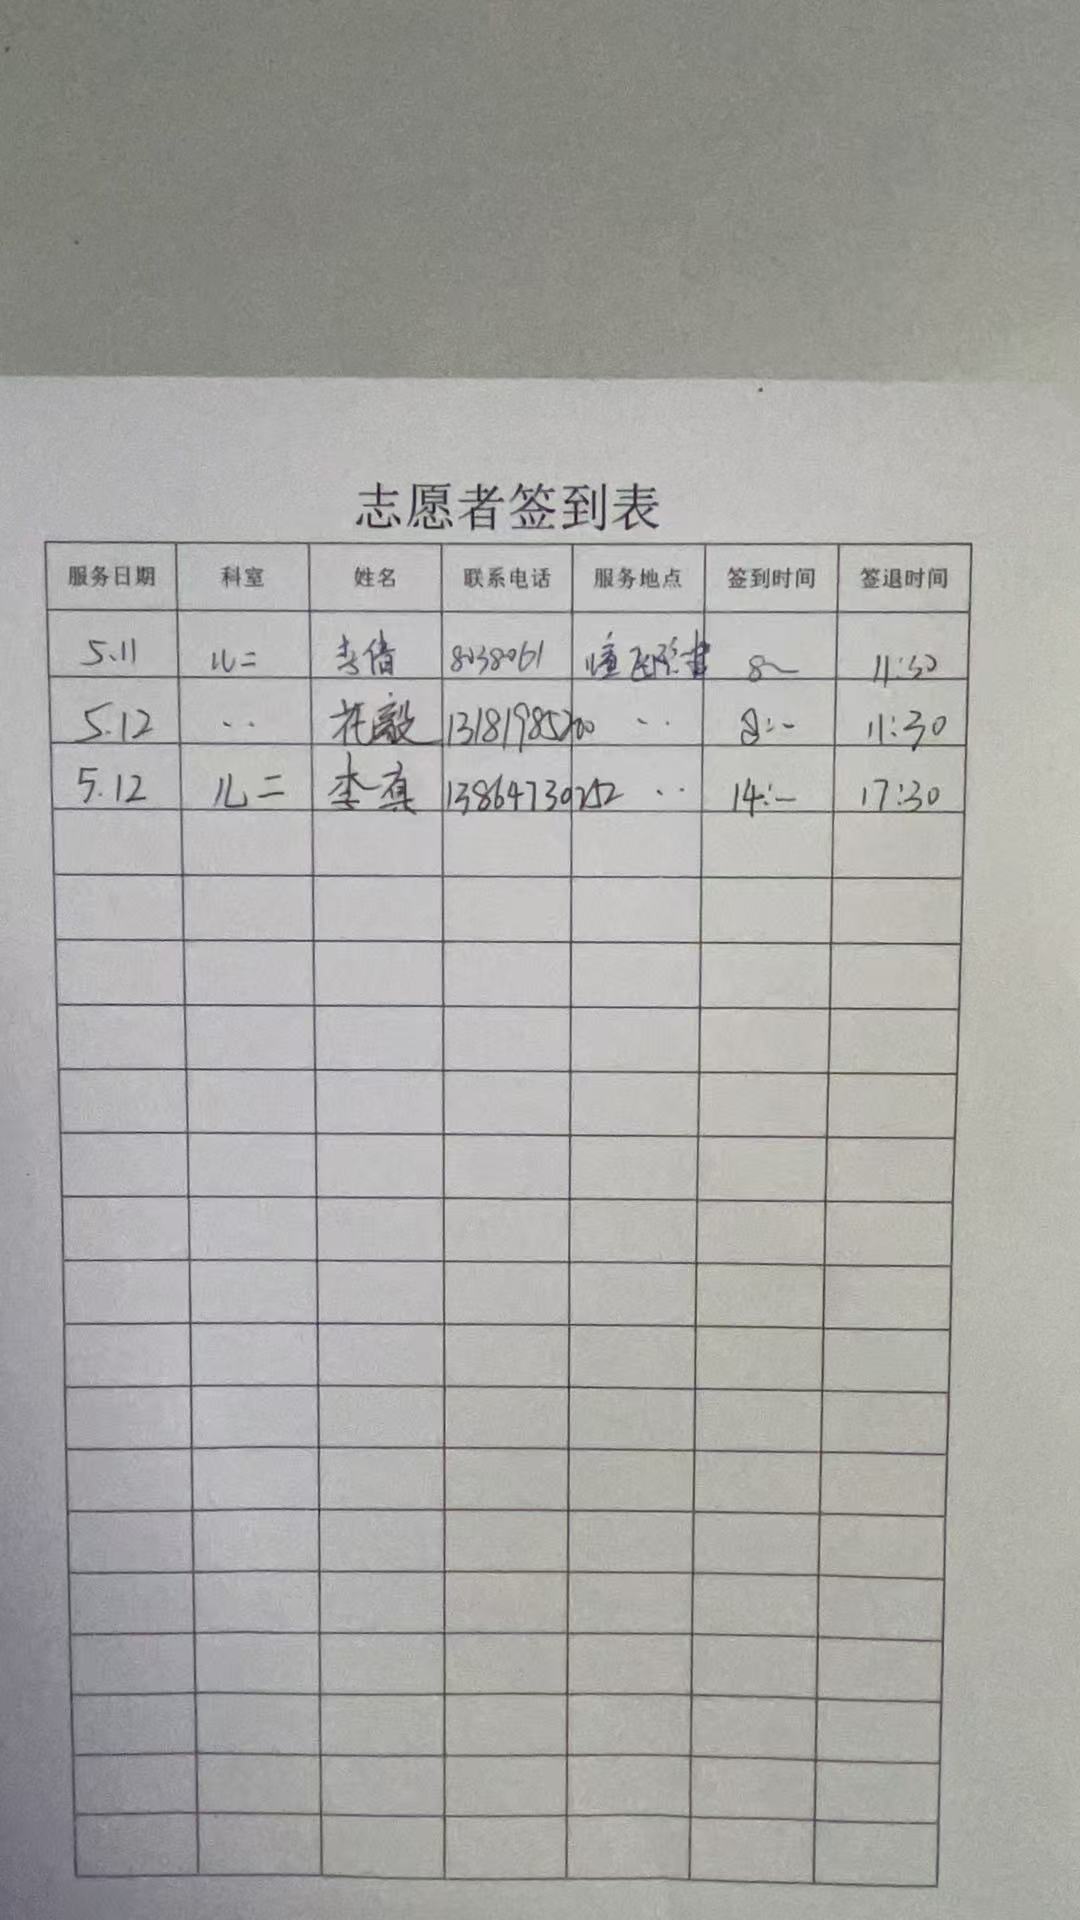 志愿者签到表
服务日期 科室 姓名 联系电话 服务地点 签到时间 签退时间
5.11 儿二 李倩 8038061 8~ 11:30
5.12 ·· 13181985200 ·· 8:- 11:30
5.12 儿二 李真 13864730252 ·· 14:- 17:30